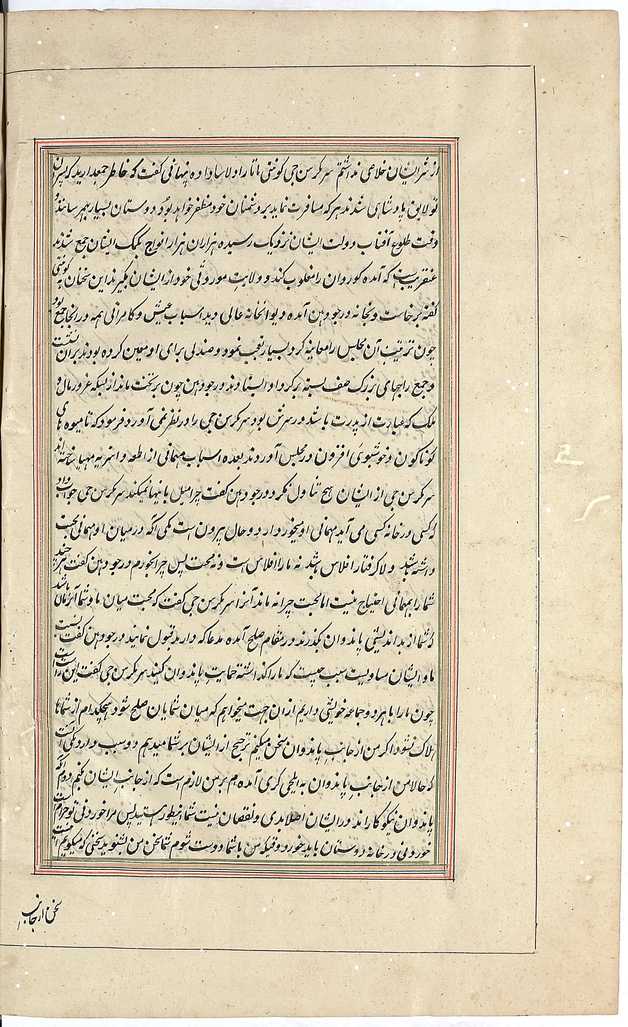 از شر ایشان خلاعی نداشتم سر کرسن جی کونتی ماتا را دلاسا داده پنهانی گفت که خاطر جمع دارید که پسران
تو لایق پادشاهی شدند هر که مسافرت نماید بر دشمنان خود مظفر خواهد بود دوستان بسیار بهم رسانند و
وقت طلوع آفتاب دولت ایشان نزدیک رسیده هزاران هزار افواج بکمک ایشان جمع شدند
عنقریب است که آمده کوروان را مغلوب کند و ولایت موروثی خود از ایشان بگیرند این سخنان به کونتی
گفته برخاست و بخانه درجودهن آمده دیوانخانه عالی دید اسباب عیش و کامرانی همه در آنجا جمع بود
چون ترتیب آن مجلس را معاینه کرد بسیار تعجب نمود و صندلی برای او معین کرده بودند بر آن نشست
و جمیع راجهای بزرگ صف بسته بر گرد او ایستادند و درجودهن چون بر تخت ماند از بسکه غرور مال و
ملک که عبارت از پدرت باشد در سر تن بود سر کرسن جی را در نظر نمی آورد فرمود که تا میوه های
کوناکون و خوشبوی افزون در مجلس آوردند بعده اسباب مهمانی از اطعمه و اشربه مهیا ساخته اند
سر کرسن جی از ایشان هیچ تناول نکرد درجودهن گفت چرا میل باینها نمیکنید سر کرسن جی جواب داد
که کسی در خانه کسی می آید مهمانی او میخورد از دو حال بیرون است یکی آنکه در میان او مهمانی محبت
داشته باشد و الا گرفتار افلاس باشد نه ما را افلاس است و نه محبت پس چرا بخورم درجودهن گفت هرچند
شما را بمهمانی احتیاج نیست اما محبت چرا نه ماند آنرا سر کرسن جی گفت که محبت میان ما و شما آن زمان باشد
که شما از بد اندیشی پاندوان بگذرید و در مقام صلح آمده مدعا که دارید قبول نمایند درجودهن گفت نسبت
ما و ایشان مساویست سبب چیست که ما را گذاشته حمایت پاندوان کنند سر کرسن جی گفت این راست
چون ما را با هر دو جماعه خویشی داریم از آن جهت میخواهیم که میان شمایان صلح شود هیچکدام از شمایان
هلاک نشود اگر من از جانب پاندوان سخن میکنم ترجیح از ایشان بر شما میدهم دو سبب دارد یکی آنست
که حالا من از جانب پاندوان به ایلچی گری آمده ام بر من لازم است که از جانب ایشان گفتم دوم آنکه
پاندوان نیکوکارانند و در ایشان اصلا بدی و نقصان نیست شما نیطور نیستید پس مرا خوردنی تو حرام است
خوردنی در خانه دوستان باید خورد وقتیکه من با شما دوست شوم شما سخن من بشنوید سخنی که میکویم آنست
سخن از جانب